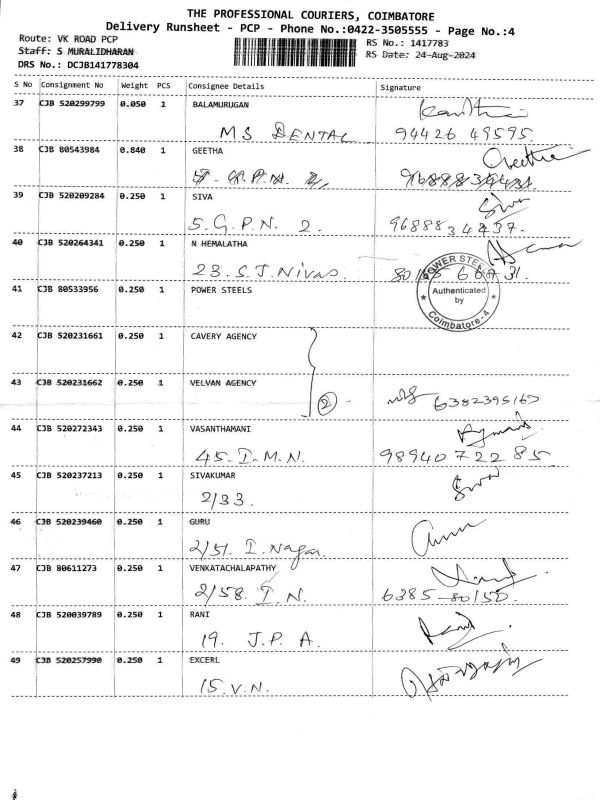 THE PROFESSIONAL COURIERS, COIMBATORE
Delivery Runsheet - PCP - Phone No.:0422-3505555 - Page No.:4
Route: VK ROAD PCP
RS No.: 1417783
Staff: S MURALIDHARAN
RS Date: 24-Aug-2024
DRS No.: DCJB141778304
S No Consignment No Weight PCS Consignee Details Signature
37 CJB 520299799 0.050 1 BALAMURUGAN
MS DENTAL 94426 49595
38 CJB 80543984 0.840 1 GEETHA
Geetha
39 CJB 520209284 0.250 1 SIVA
Siva
5. G. P. N. 2. 96888 34437.
40 CJB 520264341 0.250 1 N HEMALATHA
23. S. J. Nivas.
41 CJB 80533956 0.250 1 POWER STEELS
POWER STEELS
Authenticated
by
Coimbatore-4
42 CJB 520231661 0.250 1 CAVERY AGENCY
43 CJB 520231662 0.250 1 VELVAN AGENCY
2 -
44 CJB 520272343 0.250 1 VASANTHAMANI
45. I. M. N. 98940 72285
45 CJB 520237213 0.250 1 SIVAKUMAR
2/33.
Siva
46 CJB 520239460 0.250 1 GURU
2/51. I. Nagar.
47 CJB 80611273 0.250 1 VENKATACHALAPATHY
2/58. I. N. 6385-80150.
48 CJB 520039789 0.250 1 RANI
19. J. P. A.
49 CJB 520257990 0.250 1 EXCERL
15. V. N.